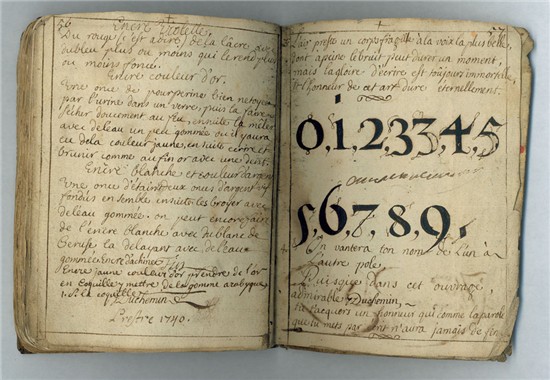 56
Encre Violette,
Du rouge c'est a dire, de la Lacre, avec
du bleu plus ou moins qui le rend plus
ou moins foncé.
Encre couleur d'or.
Une once de pourperine bien netoyée
par l'urine dans un verre, puis la faire
sécher doucement au feu, ensuite la mêler
avec de leau un peu gommée ou il y aura
eu de la couleur jaune, en suite ecrire et
brunir comme au fin or avec une dent.
Encre blanche et couleur d'argent
Une once d'étaint deux onces d'argent vif
fondüs en semble ensuite les broyer avec
de léau gommée. on peut encore faire
de l'encre blanche avec du blanc de
Ceruse la délayant avec de leau
gommée Encre d'achine
Encre jaune couleur d'or prendre de l'or
en Coquille y metre de la gomme arabyque
en coquille
Duchemin
Prestre 1740.
57
L'air preste un corps fragille a la voix la plus belle,
dont apeine le bruit peut durer un moment,
mais la gloire d'ecrire est toujours immortelle
et l'honneur de cet art dure éternellement.
0,1,2,3,3,4,5
5,6,7,8,9.
On vantera ton nom de l'un à
Lautre pole,
Puisque dans cet ouvrage,
admirable Duchemin,
tu t'acquers un honneur qui comme la parole
que tu mets par écrit n'aura jamais de fin